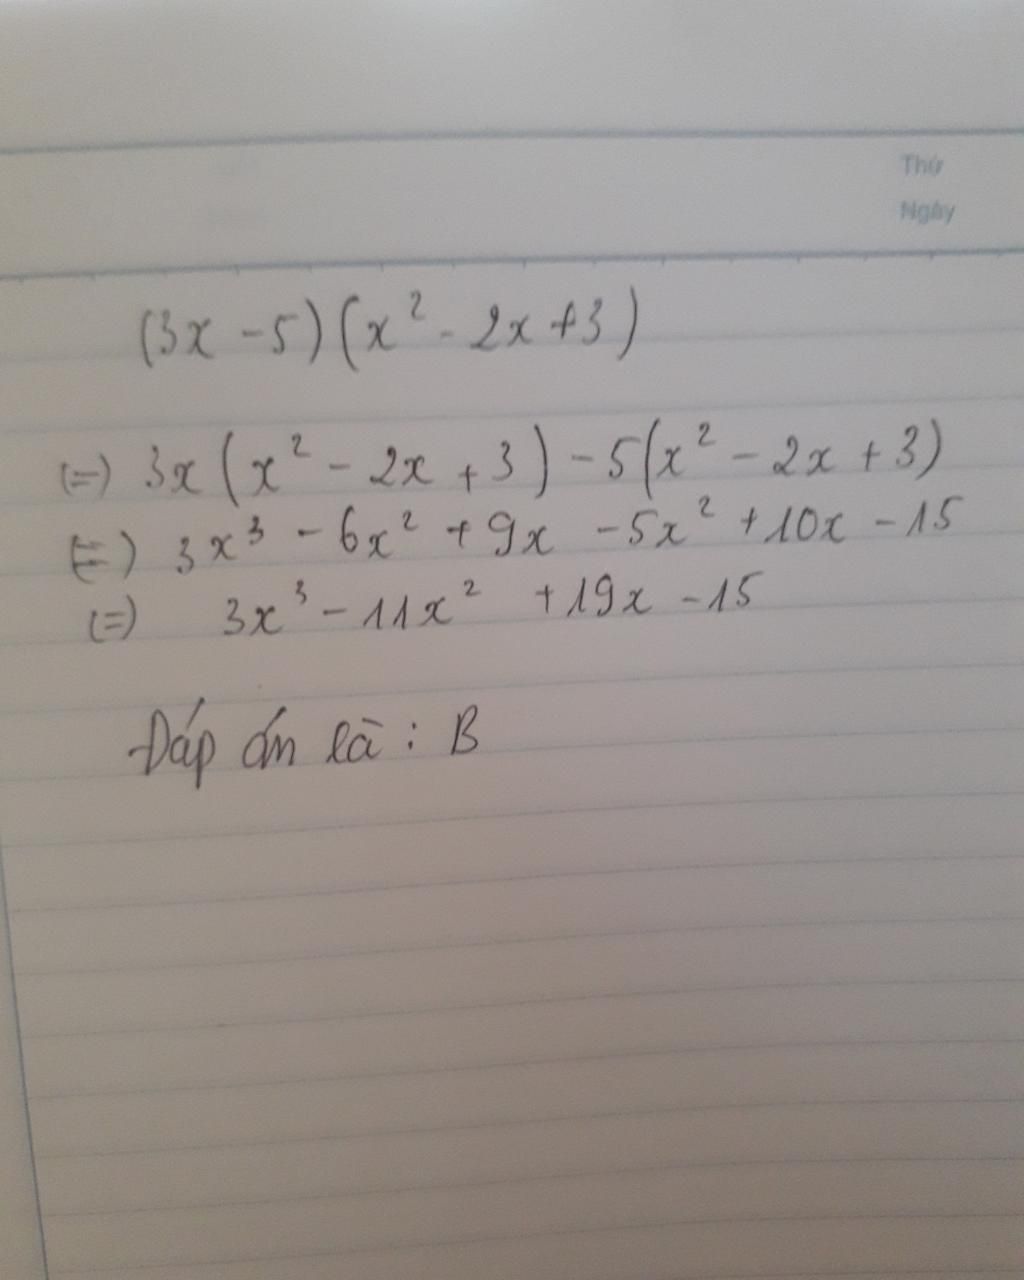 Thứ
Ngày
(3x - 5)(x² - 2x + 3)
(=) 3x(x² - 2x + 3) - 5(x² - 2x + 3)
(=) 3x³ - 6x² + 9x - 5x² + 10x - 15
(=) 3x³ - 11x² + 19x - 15
Đáp án là : B